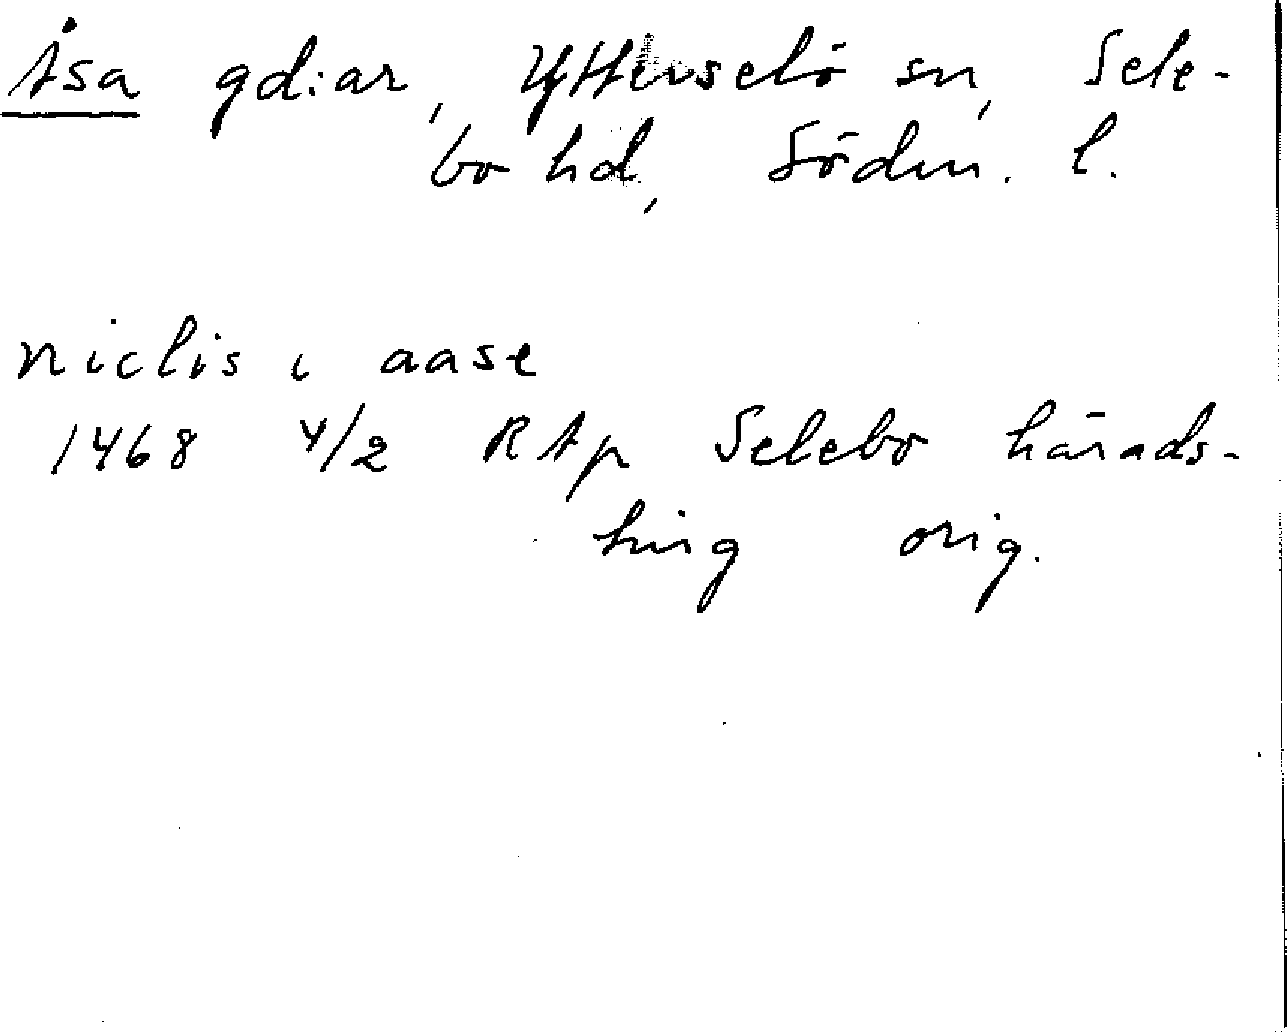 Åsa gd:ar, Ytterselö sn, Sele-
bo hd, Södm. l.
niclis i aase
1468 4/2 RAp Selebo härads-
ting orig.